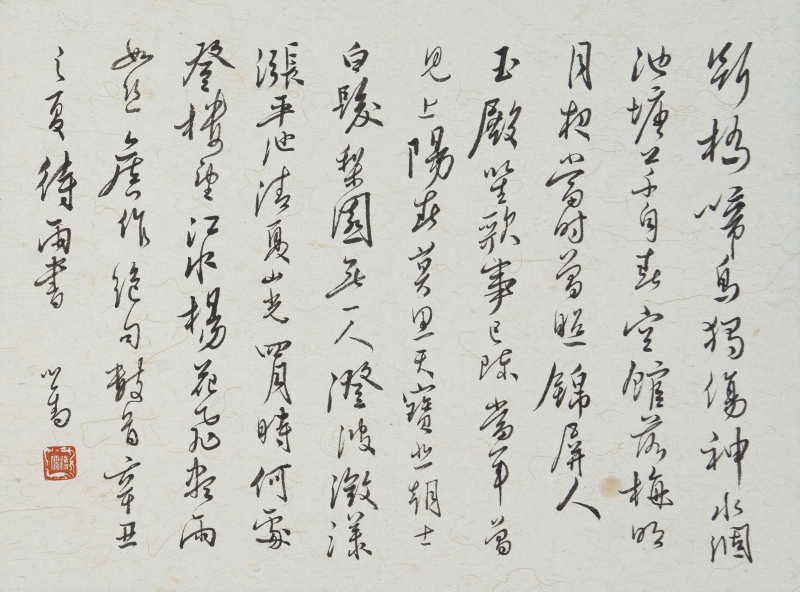 斷橋啼鳥獨傷神水涸
池塘草自春空館落梅明
月夜當時曾照錦屏人
玉殿笙歌事已陳當年曾
見上陽春莫思天寶悲朝士
白髮梨園無一人澄波漾
漲平池清夏山光四月時何處
登樓望江水楊花飛盡雨
如絲 舊作絕句數首辛丑
之夏待雨書 心畬